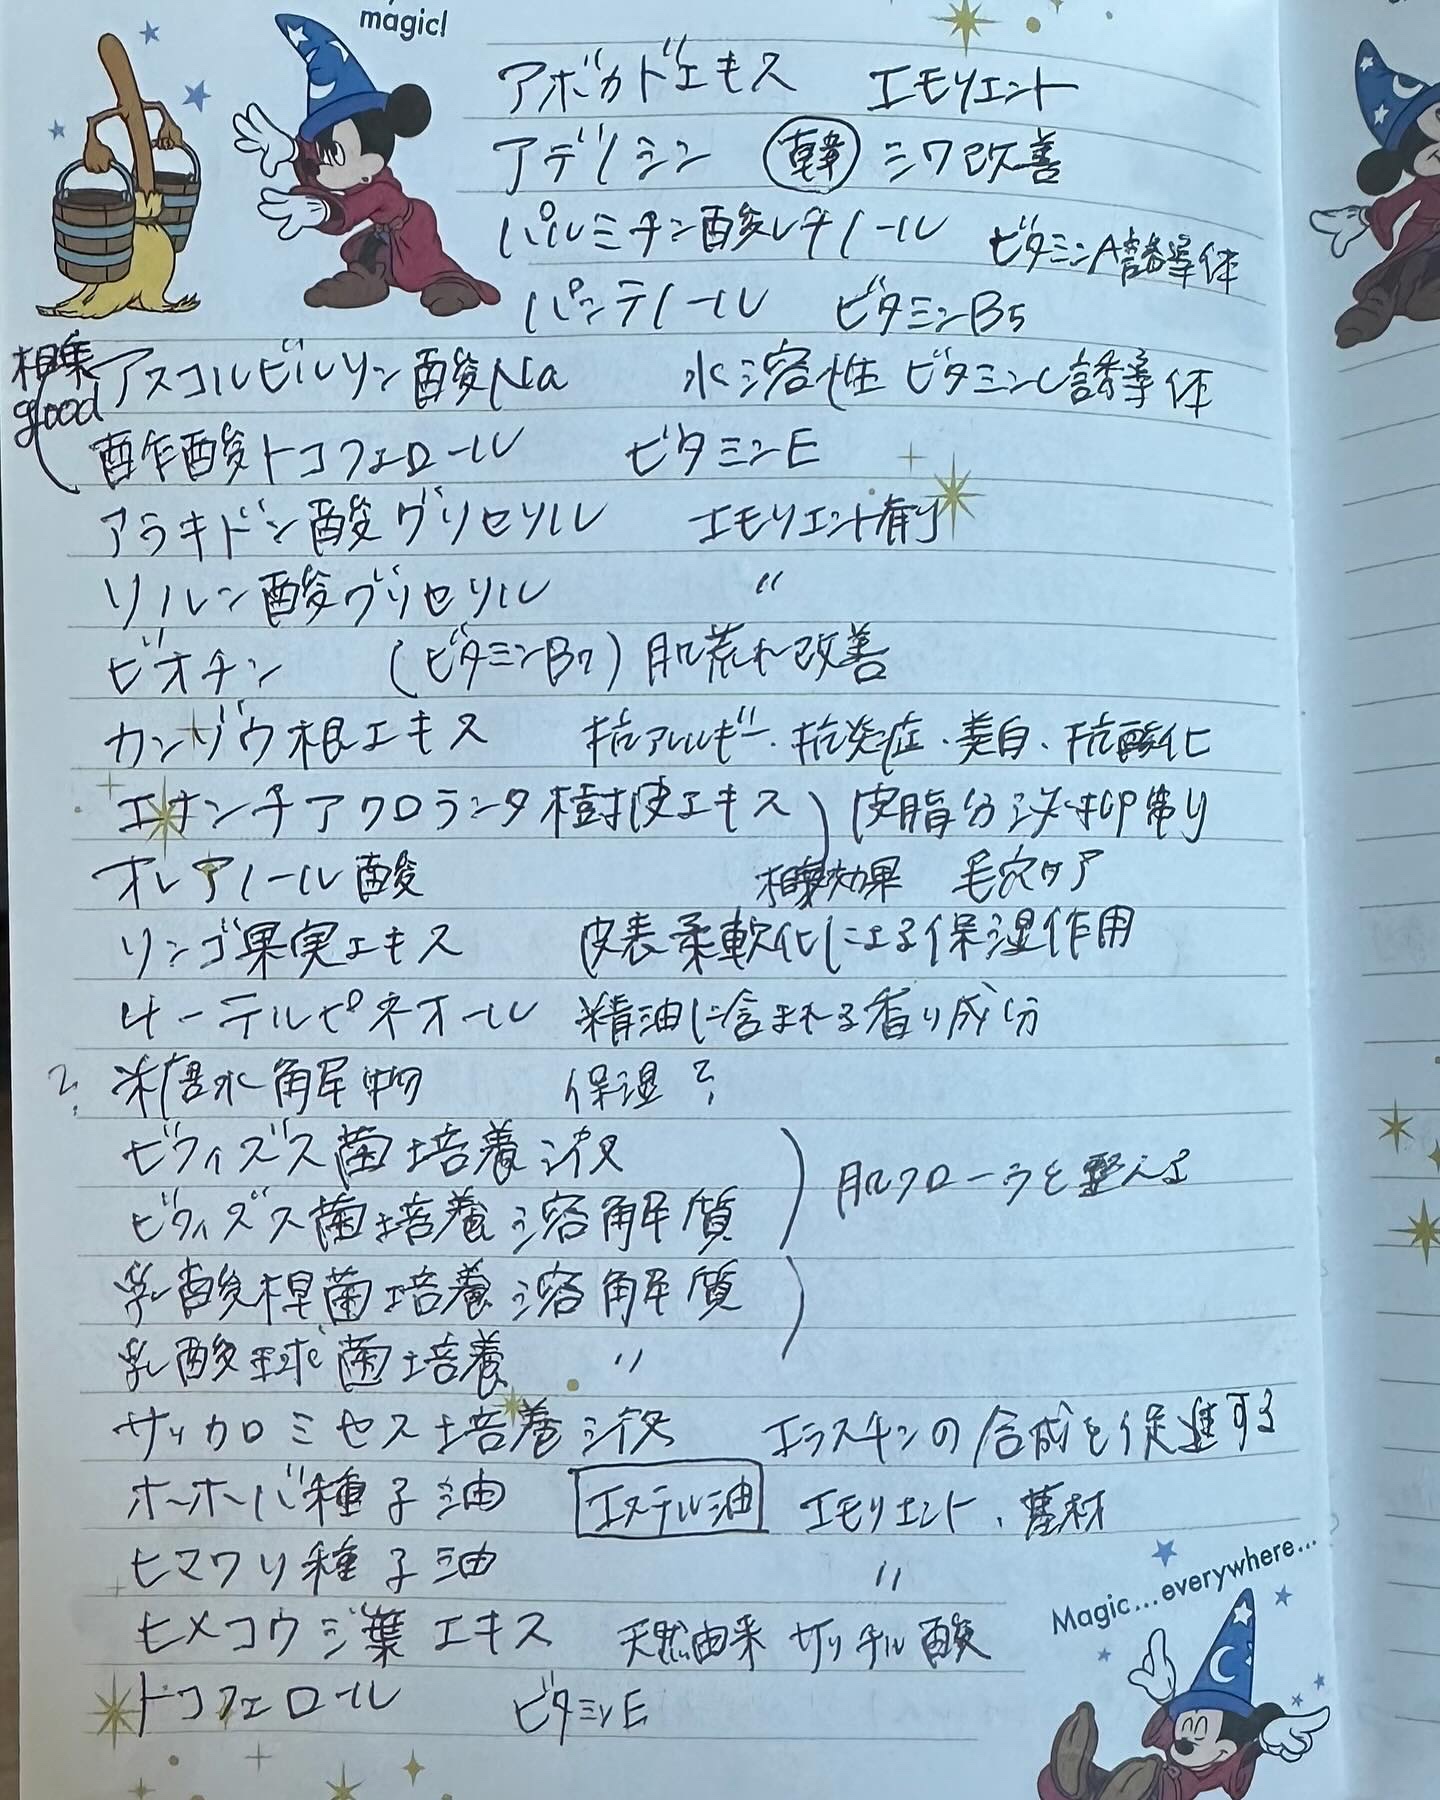 magic!
アボカドエキス エモリエント
アデノシン 韓 シワ改善
パルミチン酸レチノール ビタミンA誘導体
パンテノール ビタミンB5
相乗 アスコルビルリン酸Na 水溶性ビタミンC誘導体
good
酢酸トコフェロール ビタミンE
アラキドン酸グリセリル エモリエント有り
リノレン酸グリセリル 〃
ビオチン (ビタミンB7) 肌荒れ改善
カンゾウ根エキス 抗アレルギー・抗炎症・美白・抗酸化
エナンチアクロランタ樹皮エキス 皮脂分泌抑制
オレアノール酸 相乗効果 毛穴ケア
リンゴ果実エキス 皮表柔軟化による保湿作用
4-テルピネオール 精油に含まれる香り成分
? 米糖水解物 保湿?
ビフィズス菌培養液
ビフィズス菌培養溶解質 肌フローラを整える
乳酸桿菌培養溶解質
乳酸球菌培養 〃
サッカロミセス培養液 エラスチンの合成を促進する
ホホバ種子油 エステル油 エモリエント、基材
ヒマワリ種子油 〃
ヒメコウジ葉エキス 天然由来サリチル酸
トコフェロール ビタミンE
Magic...everywhere...